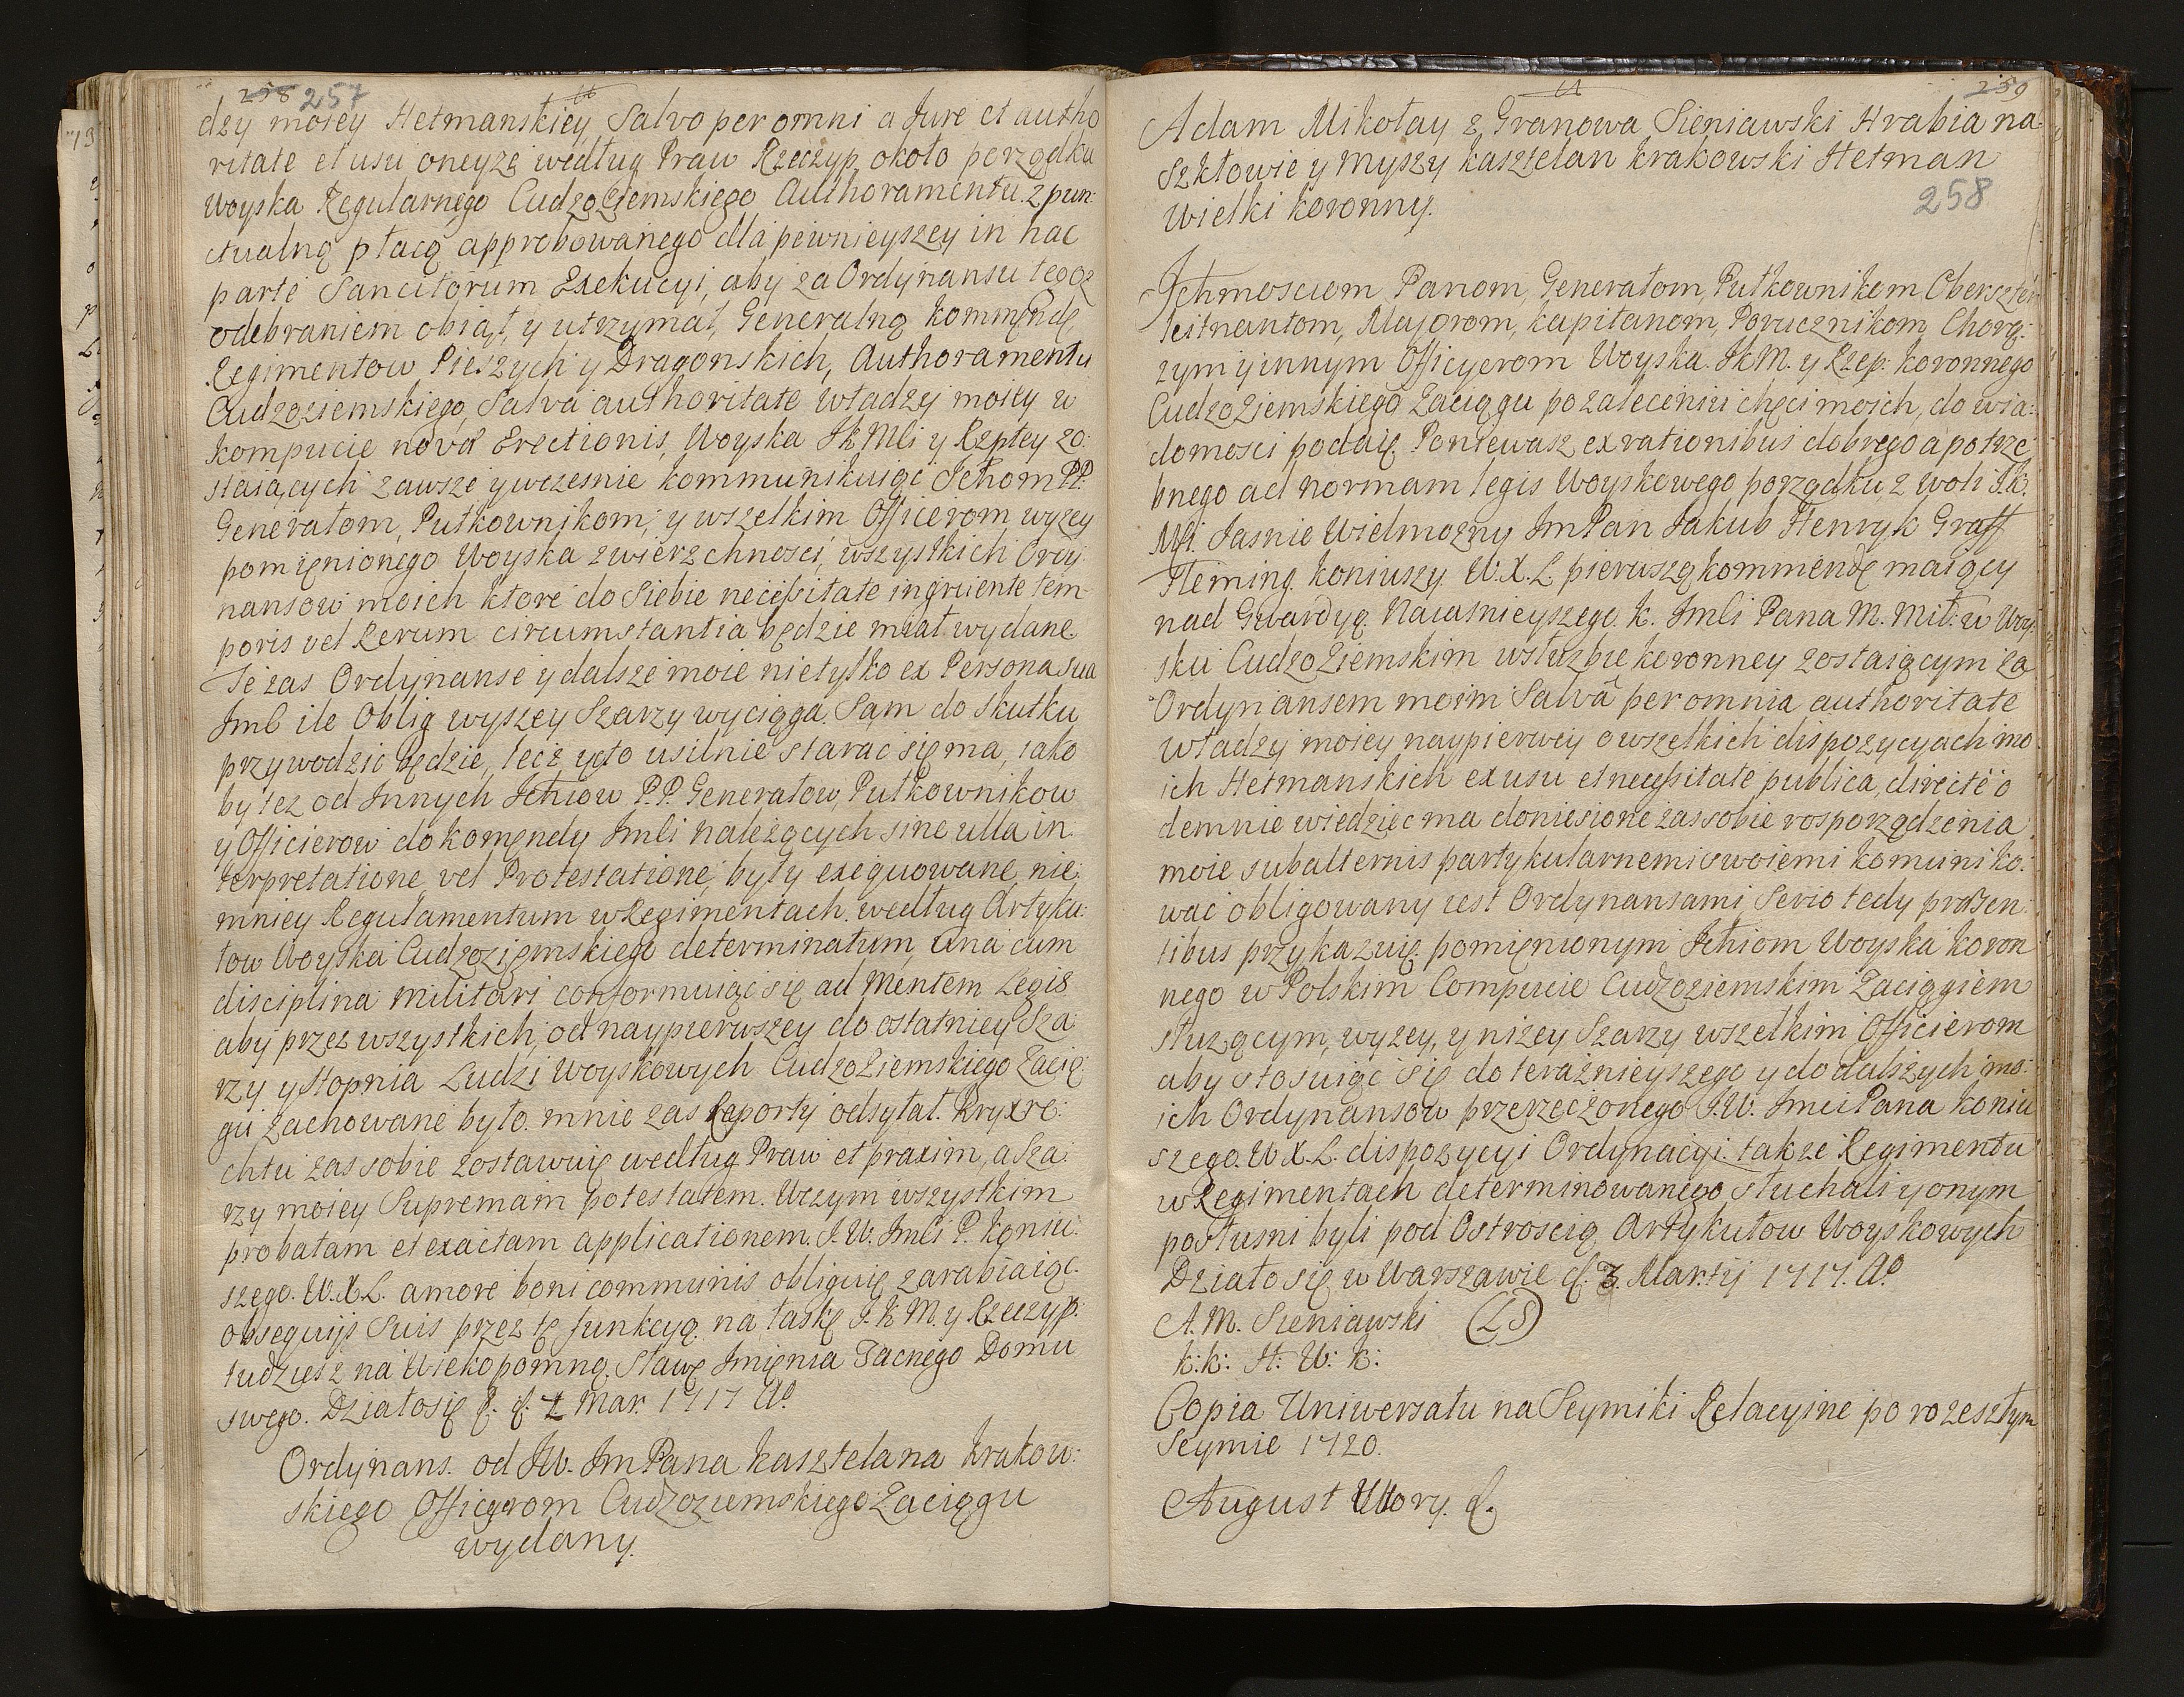 258 257
dzy moiey Hetmanskiey Salvo per omni a Jure et autho
ritate et usu oneyze według Praw Rzeczyp. około porządku
Woyska Regularnego Cudzoziemskiego Authoramentu z pun:
ctualną płacą approbowanego dla pewnieyszey in hac
parte Sancitorum Exekucyi, aby za Ordynansu tegoz
odebraniem obiął, y utrzymał, Generalną kommendę
Regimentow Pieszych y Dragonskich, Authoramentu
Cudzoziemskiego, Salva authoritate władzy moiey w
kompucie nova Erectionis, Woyska JkMci y Rzptey zo:
staiących zawsze y wczesnie kommunikuiąc Jchom PP.
Generałom, Pułkownikom, y wszelkim Officerom wyzey
pomienionego Woyska zwierzchnosci, wszystkich Ordy
nansow moich ktore do Siebie necessitate ingruente tem
poris vel Rerum circumstantia będzie miał wydane.
Te zas Ordynanse y dalsze moie nietylko ex Persona sua
Jmc ile Oblig wyszey Szarzy wyciąga. Sam do skutku
przywodzic będzie, lecz y o to usilnie starac się ma, iako
by tez od Innych Jchmow P.P. Generałow, Pułkownikow
y Officierow do komendy Jmci nalezących sine ulla in
terpretatione vel Protestatione, były exequowane, nie
mniey Regulamentum w Regimentach według Artyku:
łow Woyska Cudzoziemskiego determinatum, una cum
disciplina militari conformuiąc się ad Mentem Legis
aby przez wszystkich, od naypierwszey do ostatniey Sza
rzy y stopnia Ludzi Woyskowych Cudzoziemskiego Zacią:
gu zachowane było. mnie zas Raporty odsyłał. Kryxre:
chtu zas sobie zostawuię według Praw et praxim, a Sza:
rzy moiey Supremam potestatem. W czym wszystkim
probatam et exactam applicationem. J.W. Jmci P. Koniu:
szego. W.X.L. amore boni communis obliguię zarabiaiąc
obsequijs Suis przez tę funkcyą na łaskę J.K.M. y Rzeczyp:
tudziesz na Wiekopomną Sławę Imienia Zacnego Domu
swego. Działo się d. 2 Mar. 1717 Ao
Ordynans. od JW. Jm Pana kasztelana krakow:
skiego Officyerom Cudzoziemskiego Zaciągu
wydany.
259
Adam Mikołay z Granowa Sieniawski Hrabia na
Szkłowie y Myszy kasztelan krakowski Hetman
258
Wielki koronny.
Ichmosciom Panom, Generałom, Pułkownikom Oberszter
leitnantom, Majorom, kapitanom, Porucznikom, Chorą:
zym y innym Officyerom Woyska. JkM. y Rzep: koronnego
Cudzoziemskiego Zaciągu po zaleceniu chęci moich, do wia:
domosci podaię. Poniewasz ex rationibus dobrego a potrze
bnego ad normam legis Woyskowego porządku, z woli J.K.
Mci. Jasnie Wielmozny Jm Pan Jakub Henryk Graff
Fleming. koniuszy W.X.L. pierwszą kommendę maiący
nad Gwardyą Naiasnieyszego. K. Jmci Pana M. Mił: w Woy:
sku Cudzoziemskim w słuzbie koronney zostaiącym za
Ordynansem moim Salvâ per omnia authoritate
władzy moiey naypierwey o wszelkich dispozycyach mo
ich Hetmanskich ex usu et necessitate publica, directè o
demnie wiedziec ma doniesione zas sobie rosporządzenia
moie subalternis partykularnemi swoiemi komuniko:
wac obligowany iest Ordynansami, Serio tedy præsen:
tibus przykazuię pomienionym Jchmom Woyska koron
nego w Polskim Compucie Cudzoziemskim Zaciągiem
słuzącym, wyzey, y nizey Szarzy wszelkim Officierom
aby stosuiąc się do terażnieyszego y do dalszych mo:
ich Ordynansow przerzeczonego J.W. Jmci Pana koniu
szego. W.X.L. dispozycyi Ordynacyi. takze Regimentu
w Regimentach determinowanego słuchali y onym
posłusni byli pod Ostroscią Artykułow Woyskowych
Działo się w Warszawie d. 3. Martij 1717. Ao
A. M. Sieniawski (LS)
k: k: H: W: k:
Copia Uniwersału na Seymiki Relacyine po rozeszłym
Seymie 1720.
August Wtory. d.